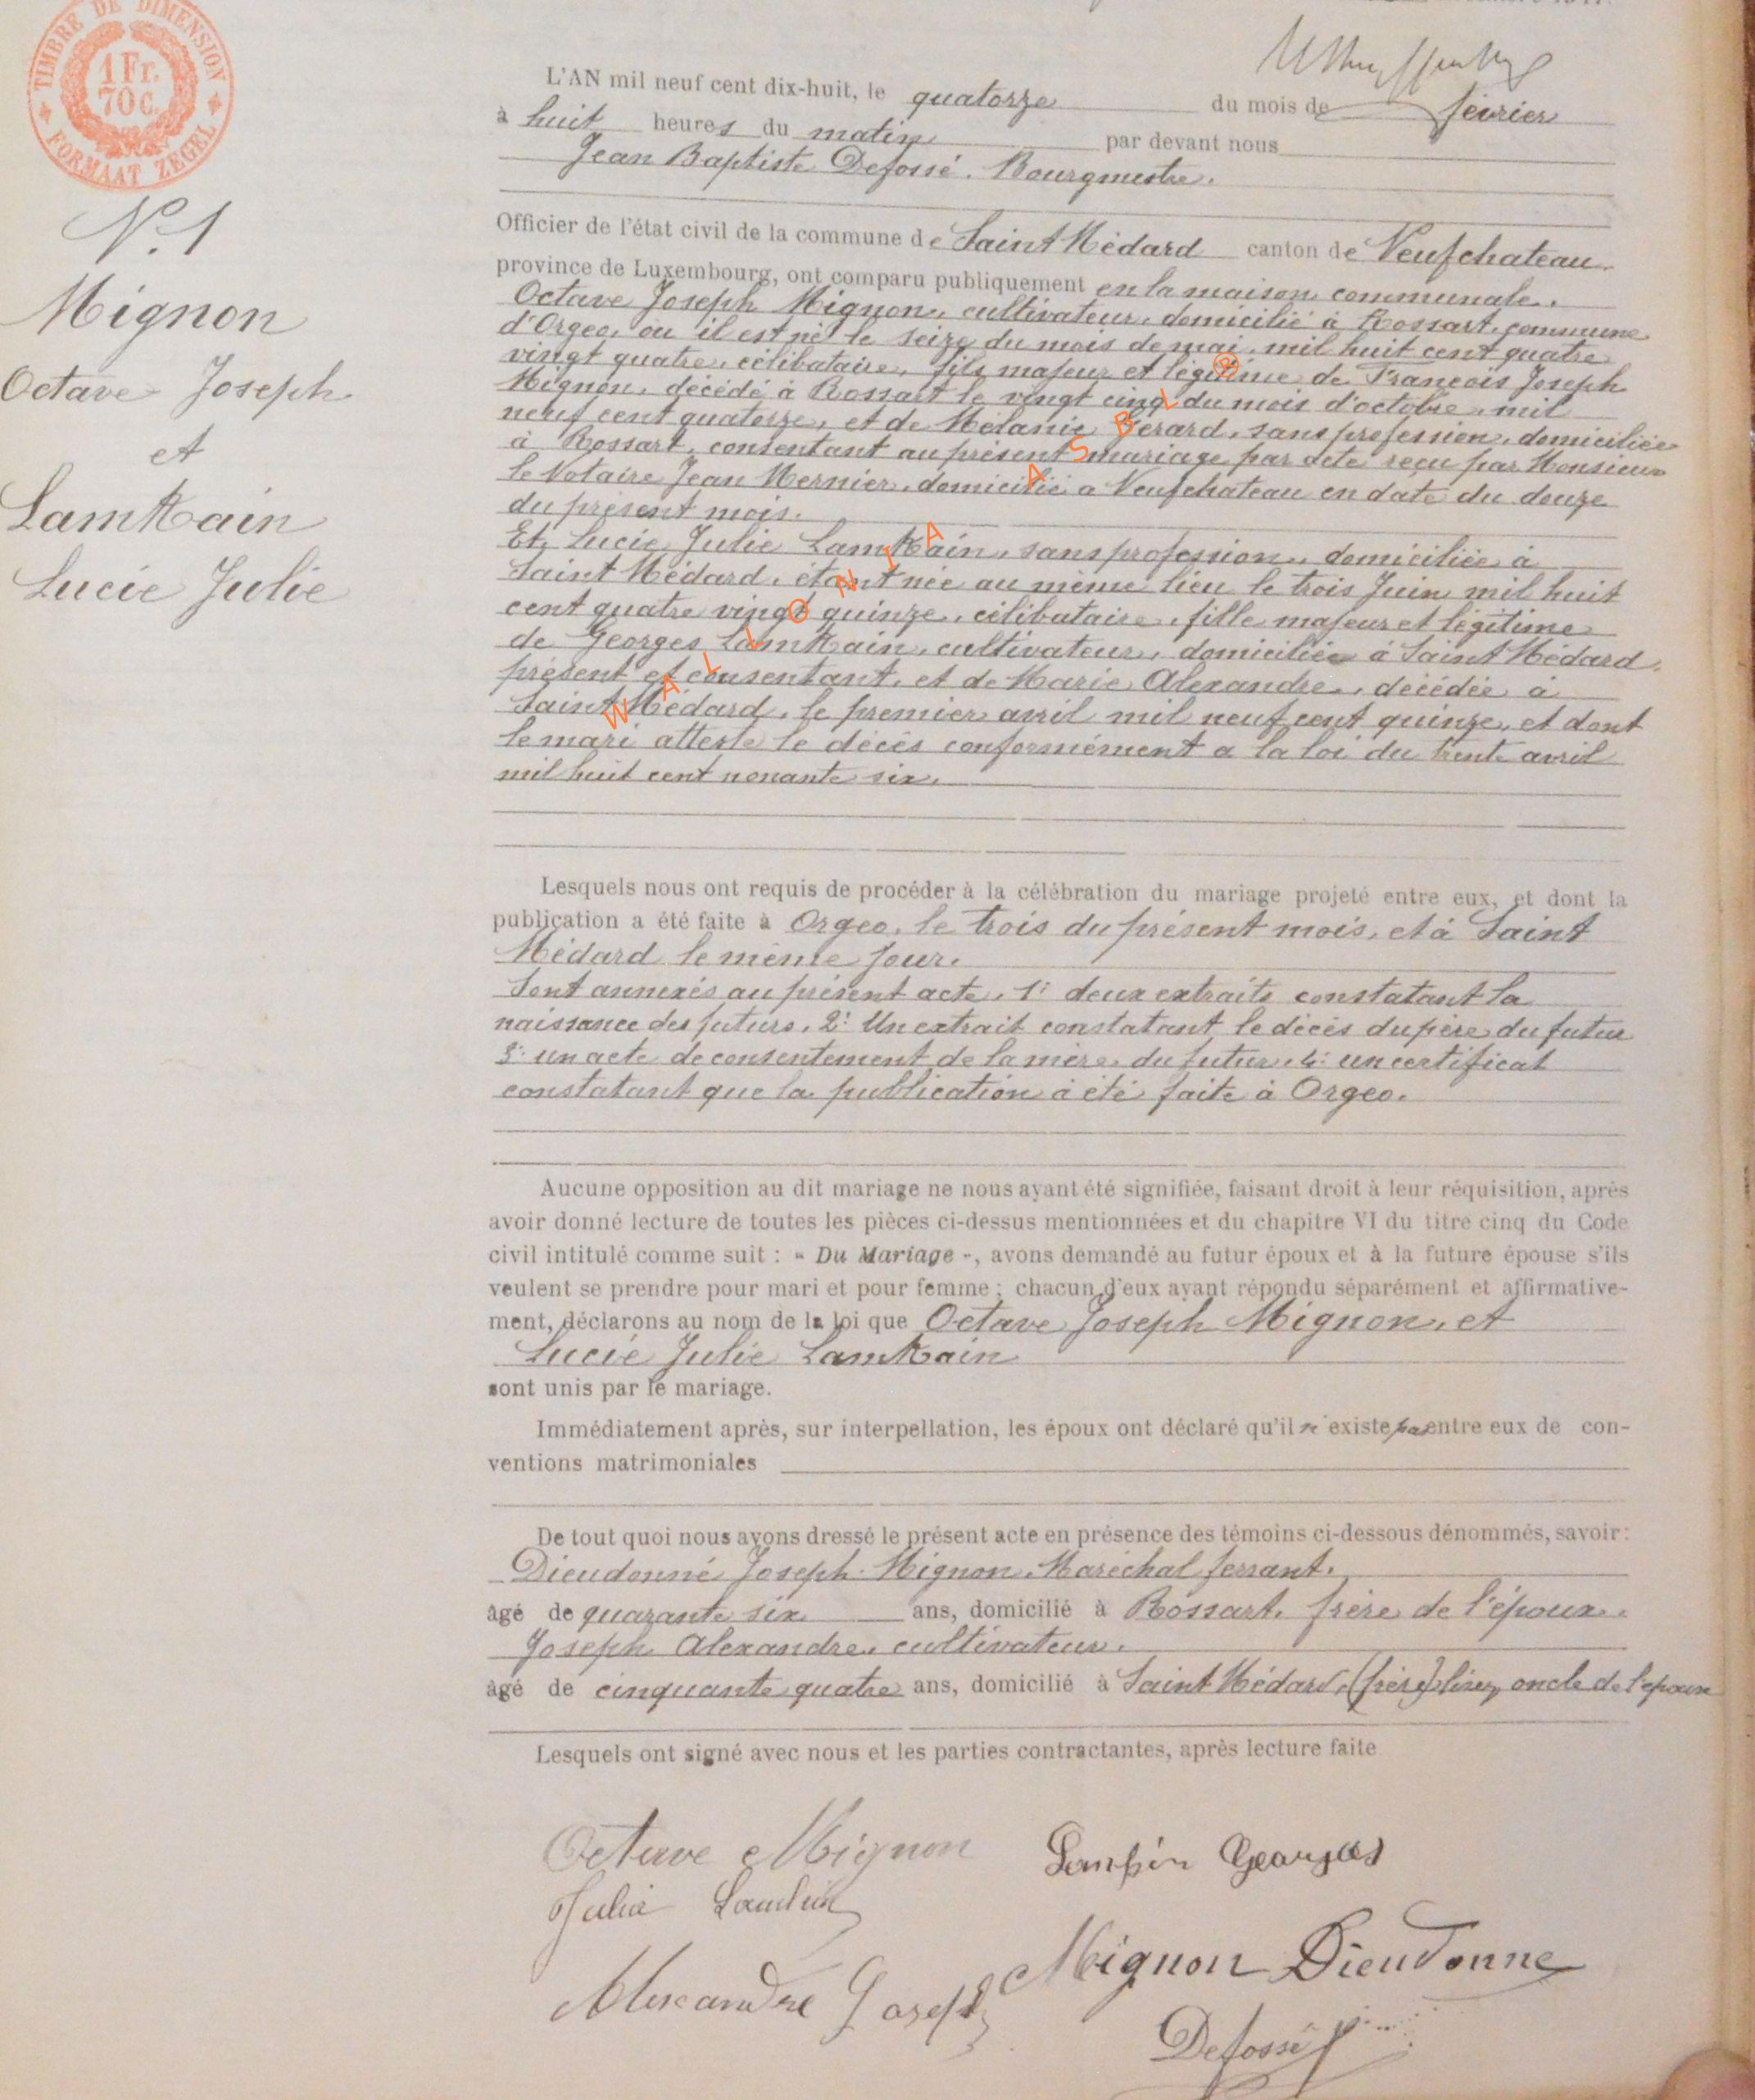 TIMBRE DE DIMENSION
1 Fr.
70 C.
FORMAAT ZEGEL
N° 1
Mignon
Octave Joseph
et
Lamkain
Lucie Julie
L'AN mil neuf cent dix-huit, le quatorze du mois de février
à huit heures du matin par devant nous
Jean Baptiste Defossé. Bourgmestre.
Officier de l'état civil de la commune de Saint Médard canton de Neufchateau
province de Luxembourg, ont comparu publiquement en la maison communale.
Octave Joseph Mignon, cultivateur, domicilié à Rossart, commune
d'Orgeo, ou il est né le seize du mois de mai, mil huit cent quatre
vingt quatre, célibataire, fils majeur et légitime de François Joseph
Mignon, décédé à Rossart le vingt cinq du mois d'octobre, mil
neuf cent quatorze, et de Mélanie Gérard, sans profession, domiciliée
à Rossart, consentant au présent mariage par acte reçu par Monsieur
le Notaire Jean Mernier, domicilié a Neufchateau en date du douze
du présent mois.
Et, Lucie Julie Lamkain, sans profession, domiciliée à
Saint Médard, étant née au même lieu le trois Juin mil huit
cent quatre vingt quinze, célibataire, fille majeur et légitime
de Georges Lamkain, cultivateur, domicilié à Saint Médard,
présent et consentant, et de Marie Alexandre, décédée à
Saint Médard, le premier avril mil neuf cent quinze, et dont
le mari atteste le décès conformément a la loi du trente avril
mil huit cent nonante six.
WALLONIA ASBL ®
Lesquels nous ont requis de procéder à la célébration du mariage projeté entre eux, et dont la
publication a été faite à Orgeo, le trois du présent mois, et à Saint
Médard le même jour.
Sont annexés au présent acte, 1° deux extraits constatant la
naissance des futurs, 2° Un extrait constatant le décès du père du futur
3° un acte de consentement de la mère du futur, 4° un certificat
constatant que la publication à été faite à Orgeo.
Aucune opposition au dit mariage ne nous ayant été signifiée, faisant droit à leur réquisition, après
avoir donné lecture de toutes les pièces ci-dessus mentionnées et du chapitre VI du titre cinq du Code
civil intitulé comme suit : « Du Mariage », avons demandé au futur époux et à la future épouse s'ils
veulent se prendre pour mari et pour femme ; chacun d'eux ayant répondu séparément et affirmative-
ment, déclarons au nom de la loi que Octave Joseph Mignon, et
Lucie Julie Lamkain
sont unis par le mariage.
Immédiatement après, sur interpellation, les époux ont déclaré qu'il n'existe pas entre eux de con-
ventions matrimoniales
De tout quoi nous avons dressé le présent acte en présence des témoins ci-dessous dénommés, savoir :
Dieudonné Joseph Mignon, Maréchal ferrant,
âgé de quarante six ans, domicilié à Rossart, frère de l'époux.
Joseph Alexandre, cultivateur.
âgé de cinquante quatre ans, domicilié à Saint Médard, (frère) oncle de l'épouse
Lesquels ont signé avec nous et les parties contractantes, après lecture faite
Octave Mignon
Lampin Georges
Julie Lamkin
Mignon Dieudonne
Alexandre Joseph
Defossé